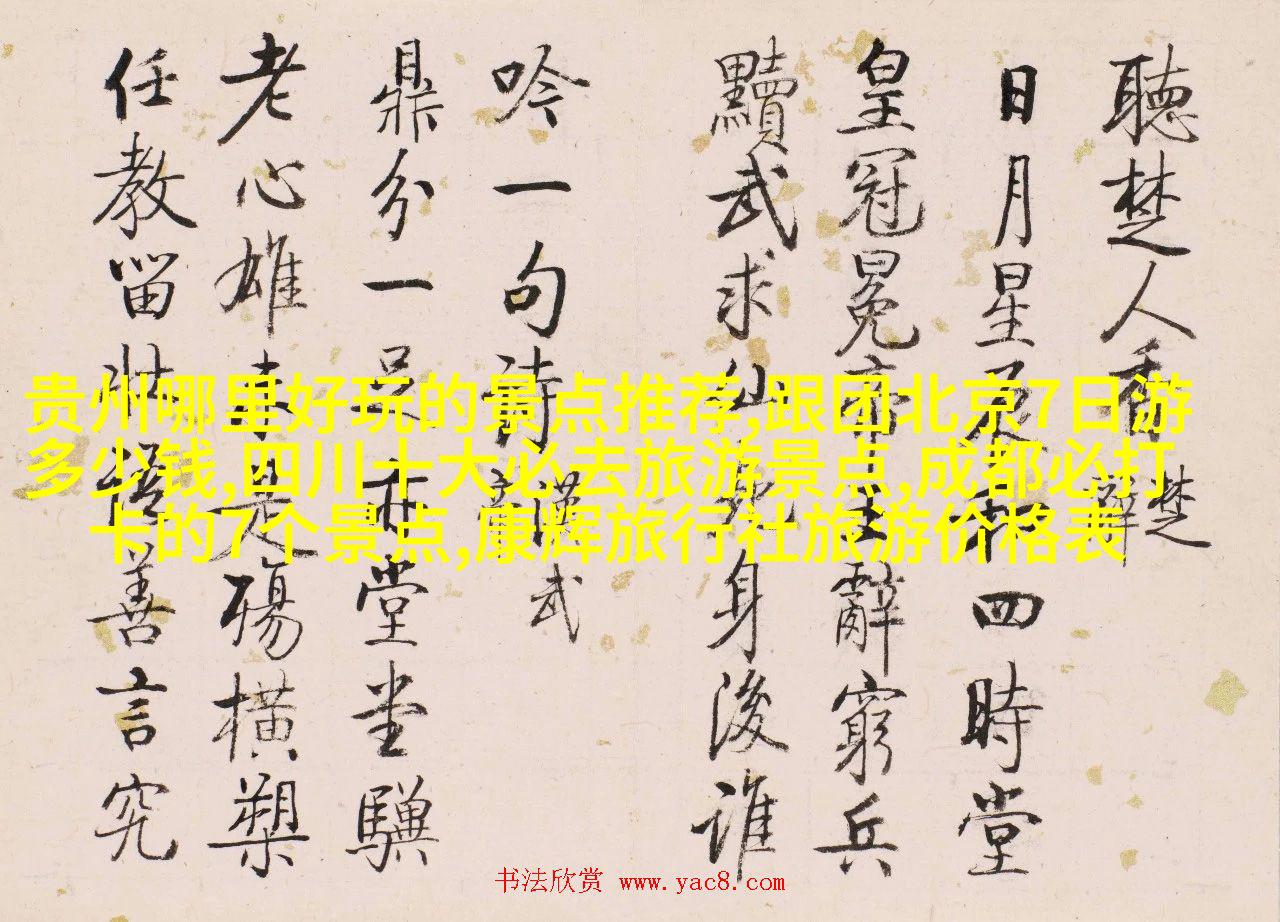 聽楚人香楚
日月星辰和四時堂
皇冠冕亦王辭窮兵
黷武求仙死身後誰
吟一句詩漢武
鼎分一足亦堂堂驥
老心雄未是殤橫槊
任教留壯善言究
贵州哪里好玩的景点推荐,跟团北京7日游
多少钱,四川十大必去旅游景点,成都必打
卡的7个景点,康辉旅行社旅游价格表
书法欣赏 www.yac8.com